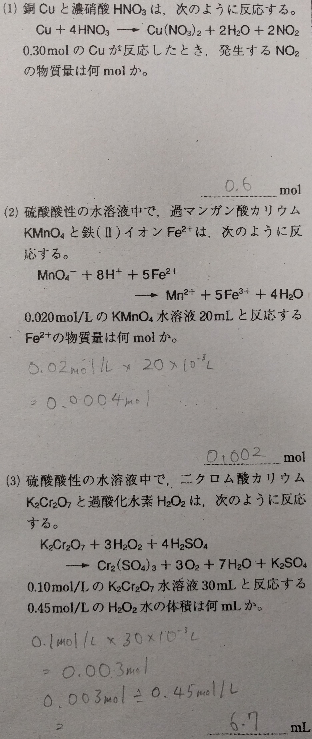 (1) 銅Cuと濃硝酸HNO₃は，次のように反応する。
Cu + 4HNO₃ → Cu(NO₃)₂ + 2H₂O + 2NO₂
0.30molのCuが反応したとき，発生するNO₂
の物質量は何molか。
0.6 mol
(2) 硫酸酸性の水溶液中で，過マンガン酸カリウム
KMnO₄と鉄(Ⅱ)イオンFe²⁺は，次のように反
応する。
MnO₄⁻ + 8H⁺ + 5Fe²⁺
→ Mn²⁺ + 5Fe³⁺ + 4H₂O
0.020mol/LのKMnO₄水溶液20mLと反応する
Fe²⁺の物質量は何molか。
0.02mol/L × 20×10⁻³L
= 0.0004mol
0.002 mol
(3) 硫酸酸性の水溶液中で，二クロム酸カリウム
K₂Cr₂O₇と過酸化水素H₂O₂は，次のように反応
する。
K₂Cr₂O₇ + 3H₂O₂ + 4H₂SO₄
→ Cr₂(SO₄)₃ + 3O₂ + 7H₂O + K₂SO₄
0.10mol/LのK₂Cr₂O₇水溶液30mLと反応する
0.45mol/LのH₂O₂水の体積は何mLか。
0.1mol/L × 30×10⁻³L
= 0.003mol
0.003mol ÷ 0.45mol/L
=
6.7 mL